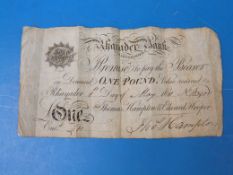 Rhayader Bank
Promise to pay the Bearer
on Demand ONE POUND, Value received
Rhayader 1st Day of May
Thomas Hampton & Edward Hooper
One
Thos Hampton